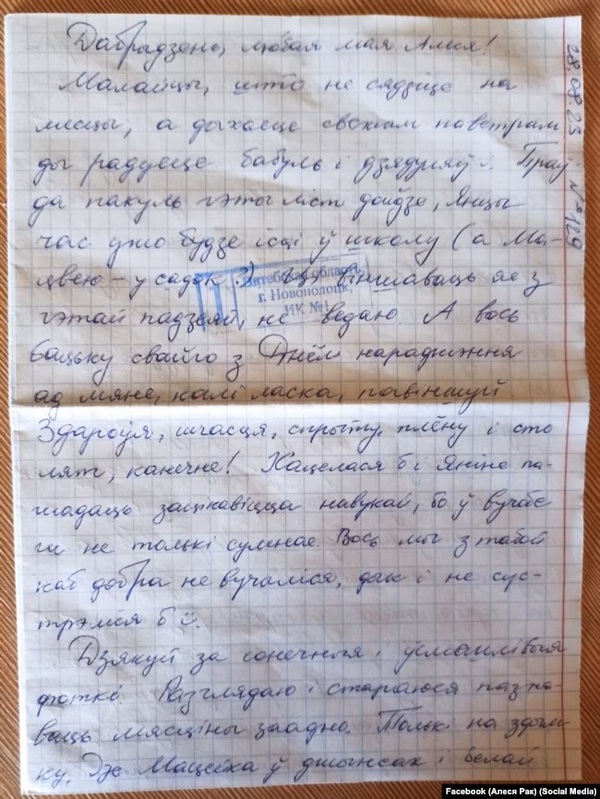 Дабрадзень, любая мая Алися!
Малайцы, што не сядзіце на
месцы, а дыхаеце свежым паветрам
ды радуеце бабуль і дзядуляў. Праў
да пакуль гэты ліст дойдзе, Янцы
час ужо будзе ісці ў школу (а Ма-
цвею – у садок?). Ці віншаваць яе з
гэтай падзеяй, не ведаю. А вось
бацьку свайго з Днём нараджэння
ад мяне, калі ласка, павіншуй
Здароўя, шчасця, спрыту, плёну і сто
лят, канечне! Хацелася б і Яніне па-
жадаць зацікавіцца навукай, бо ў вучобе
ж не толькі сумнае. Вось мы з табой
каб добра не вучыліся, дык і не сус-
трэліся б ☺.
Дзякуй за сонечныя і ўсмешлівыя
фоткі. Разглядаю і стараюся пазна-
ваць мясціны заадно. Толькі на здым-
ку, дзе Мацейка ў джынсах і белай
28.08.23 №129
Витебская область
г. Новополоцк,
ИК №1
Facebook (Алеся Рак) (Social Media)